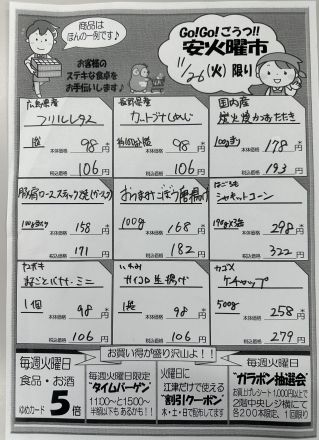 商品は
ほんの一例です♪
お客様の
ステキな食卓を
お手伝いします♪
Go!Go!ごうつ!!
安火曜市
11/26(火)限り
広島県産
フリルレタス
本体価格 98円
税込価格 106円
長野県産
カットブナしめじ
本体価格 98円
税込価格 106円
国内産
炭火焼かつおたたき
100g当り
本体価格 178円
税込価格 193円
豚肩ローススティック
100g当り
本体価格 158円
税込価格 171円
おつまみごぼう唐揚げ
100g
本体価格 168円
税込価格 182円
はごろも
シャキッとコーン
190g×3缶
本体価格 298円
税込価格 322円
ヤマザキ
まるごとバナナ・ミニ
1個
本体価格 98円
税込価格 106円
サイコロ生揚げ
本体価格 98円
税込価格 106円
カゴメ
ケチャップ
500g
本体価格 258円
税込価格 279円
お買い得が盛り沢山よ!!
毎週火曜日
食品・お酒
ゆめカード5倍
毎週火曜日限定
"タイムバーゲン"
11:00~と15:00~
半額以下もあるかも!!
火曜日に
江津だけで使える
"割引クーポン"
木・土・日で配布してます
毎週火曜日
"ガラポン抽選会"
お買上げレシート1,000円以上で
2階中央レジ横にて
各200本限定、1回限り